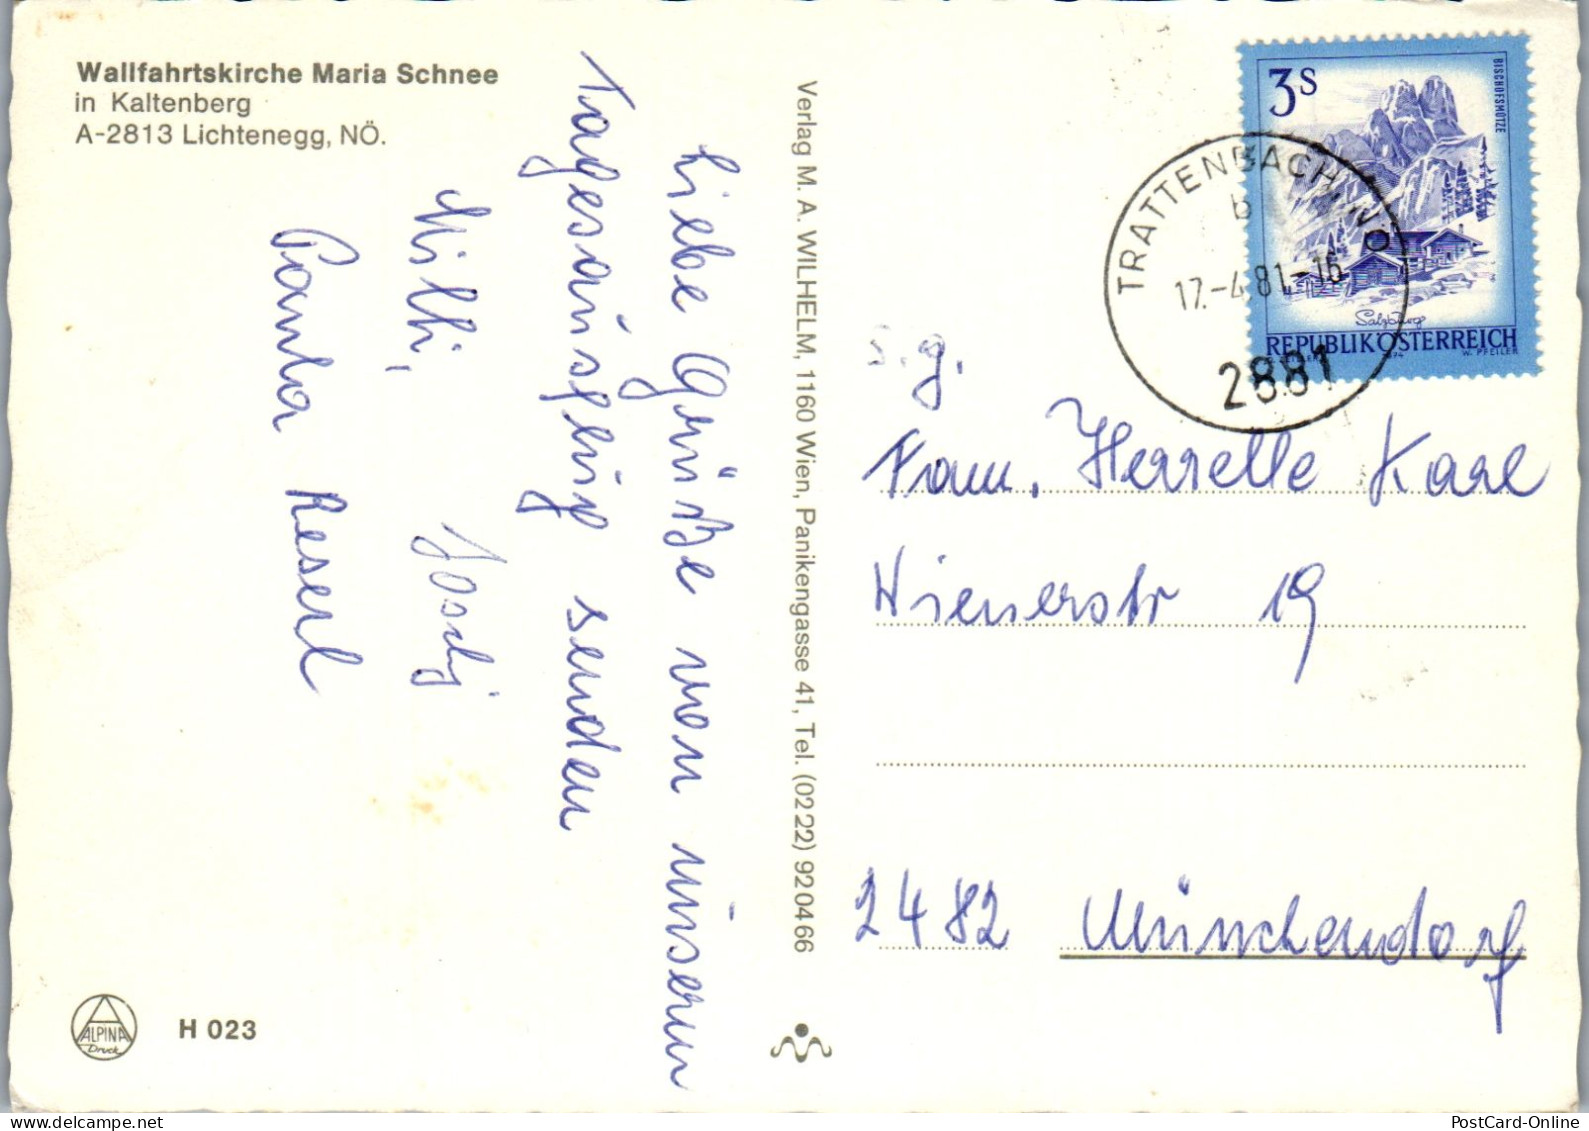 Wallfahrtskirche Maria Schnee
in Kaltenberg
A-2813 Lichtenegg, NÖ.
Liebe Grüße von unserem
Tagesausflug senden
Milli, Joschi
Reserl
H 023
ALPINA
Druck
Verlag M. A. WILHELM, 1160 Wien, Panikengasse 41, Tel. (02 22) 92 04 66
3 S
BISCHOFSMÜTZE
Salzburg
REPUBLIK ÖSTERREICH
W. PFEILER
TRATTENBACH, NÖ
b
17.-4.81-16
2881
S. g.
Fam. Herrelle Karl
Wienerstr 19
2482 Münchendorf
PostCard-Worldwide.delcampe.net
PostCard-Online